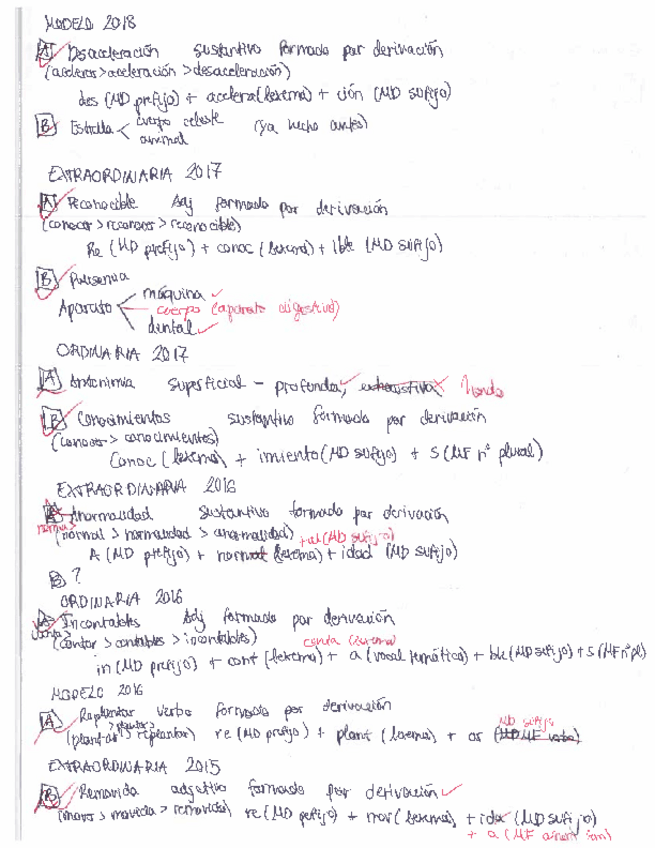 MODELO 2018
A Desaceleración sustantivo formado por derivación
(acelerar > aceleración > desaceleración)
des (MD prefijo) + acelera (lexema) + ción (MD sufijo)
B Estrella < cuerpo celeste (ya hecho antes)
animal
EXTRAORDINARIA 2017
A Reconocible Adj formado por derivación
(conocer > reconocer > reconocible)
Re (MD prefijo) + conoc (lexema) + ible (MD sufijo)
B Polisemia
máquina
Aparato cuerpo (aparato digestivo)
dental
ORDINARIA 2017
A Antonimia superficial - profunda, exhaustiva honda
B Conocimientos sustantivo formado por derivación
(conocer > conocimientos)
Conoc (lexema) + imiento (MD sufijo) + S (MF nº plural)
EXTRAORDINARIA 2016
A Anormalidad sustantivo formado por derivación
norma > (normal > normalidad > anormalidad) + al (MD sufijo)
A (MD prefijo) + normal (lexema) + idad (MD sufijo)
B ?
ORDINARIA 2016
A Incontables Adj formado por derivación
(contar > contables > incontables) conta (lexema)
in (MD prefijo) + cont (lexema) + a (vocal temática) + ble (MD sufijo) + S (MF nº pl)
MODELO 2016
A Replantar verbo formado por derivación
> plantar >
(plantar > replantar) re (MD prefijo) + plant (lexema) + ar (MD sufijo
EXTRAORDINARIA 2015
B Removida adjetivo formado por derivación
(mover > movida > removida) re (MD prefijo) + mov (lexema) + ida (MD sufijo)
+ a (MF